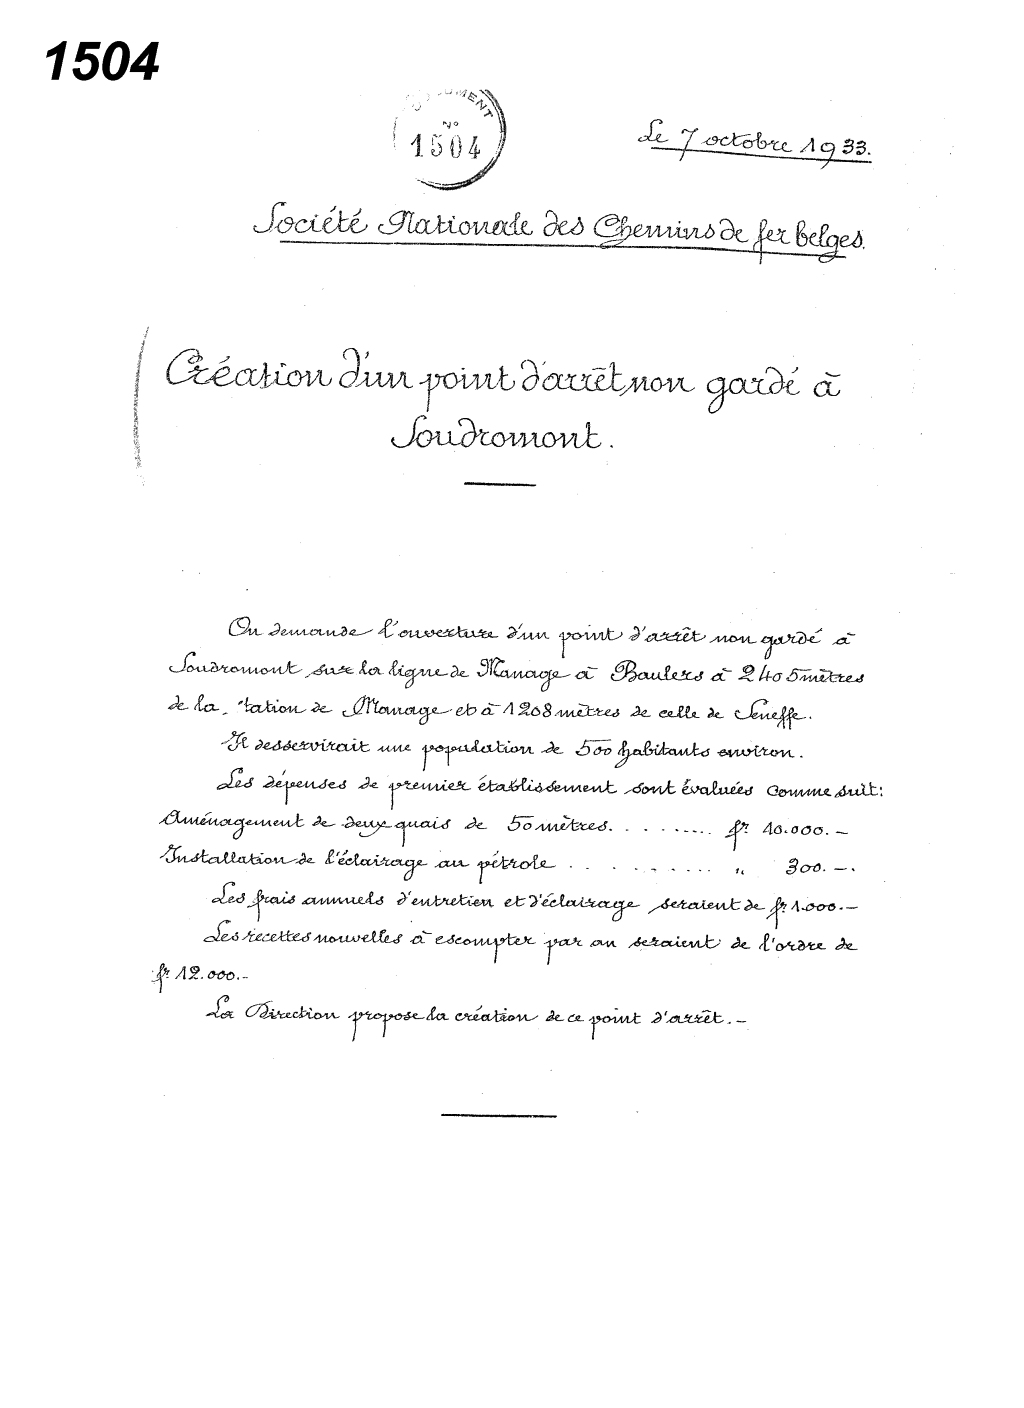 1504
DOCUMENT
N°
1504
Le 7 octobre 1933.
Société Nationale des Chemins de fer belges.
Création d'un point d'arrêt non gardé à
Soudromont.
On demande l'ouverture d'un point d'arrêt non gardé à
Soudromont sur la ligne de Manage à Baulers à 2405 mètres
de la tation de Manage et à 1208 mètres de celle de Seneffe.
Il desservirait une population de 500 habitants environ.
Les dépenses de premier établissement sont évaluées comme suit:
Aménagement de deux quais de 50 mètres. . . . . . . . . . fr. 10.000.-
Installation de l'éclairage au pétrole . . . . . . . . . . " 300.-.
Les frais annuels d'entretien et d'éclairage seraient de fr. 1.000.-
Les recettes nouvelles à escompter par an seraient de l'ordre de
fr. 12.000.-
La Direction propose la création de ce point d'arrêt.-